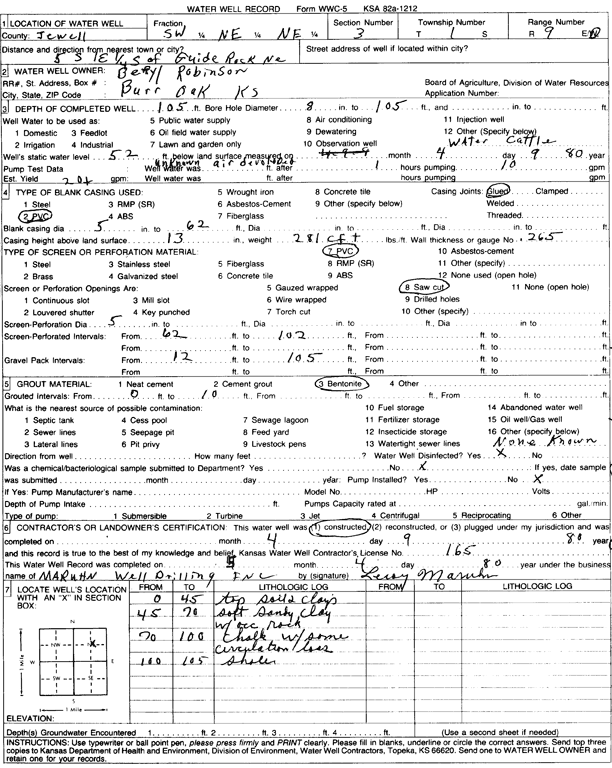 WATER WELL RECORD Form WWC-5 KSA 82a-1212
1 LOCATION OF WATER WELL Fraction Section Number Township Number Range Number
County: Jewell SW ¼ NE ¼ NE ¼ 3 T 1 S R 9 E/W
Distance and direction from nearest town or city? Street address of well if located within city?
5 S 1 E ½ S of Guide Rock Ne
2 WATER WELL OWNER: Beryl Robinson
RR#, St. Address, Box # : Board of Agriculture, Division of Water Resources
City, State, ZIP Code : Burr Oak KS Application Number:
3 DEPTH OF COMPLETED WELL 105 ft. Bore Hole Diameter 8 in. to 105 ft., and in. to ft.
Well Water to be used as: 5 Public water supply 8 Air conditioning 11 Injection well
1 Domestic 3 Feedlot 6 Oil field water supply 9 Dewatering 12 Other (Specify below)
2 Irrigation 4 Industrial 7 Lawn and garden only 10 Observation well Water Cattle
Well's static water level 52 ft. below land surface measured on month 4 day 9 80 year
Pump Test Data Well water was unknown air developed ft. after 1 hours pumping 10 gpm
Est. Yield 20+ gpm: Well water was ft. after hours pumping gpm
4 TYPE OF BLANK CASING USED: 5 Wrought iron 8 Concrete tile Casing Joints: Glued Clamped
1 Steel 3 RMP (SR) 6 Asbestos-Cement 9 Other (specify below) Welded
2 PVC 4 ABS 7 Fiberglass Threaded
Blank casing dia 5 in. to 62 ft., Dia in. to ft., Dia in. to ft.
Casing height above land surface 13 in., weight 281 cft lbs./ft. Wall thickness or gauge No. .265
TYPE OF SCREEN OR PERFORATION MATERIAL: 7 PVC 10 Asbestos-cement
1 Steel 3 Stainless steel 5 Fiberglass 8 RMP (SR) 11 Other (specify)
2 Brass 4 Galvanized steel 6 Concrete tile 9 ABS 12 None used (open hole)
Screen or Perforation Openings Are: 5 Gauzed wrapped 8 Saw cut 11 None (open hole)
1 Continuous slot 3 Mill slot 6 Wire wrapped 9 Drilled holes
2 Louvered shutter 4 Key punched 7 Torch cut 10 Other (specify)
Screen-Perforation Dia 5 in. to ft., Dia in. to ft., Dia in. to ft.
Screen-Perforated Intervals: From 62 ft. to 102 ft., From ft. to ft.
From ft. to ft., From ft. to ft.
Gravel Pack Intervals: From 12 ft. to 105 ft., From ft. to ft.
From ft. to ft., From ft. to ft.
5 GROUT MATERIAL: 1 Neat cement 2 Cement grout 3 Bentonite 4 Other
Grouted Intervals: From 0 ft. to 10 ft., From ft. to ft., From ft. to ft.
What is the nearest source of possible contamination: 10 Fuel storage 14 Abandoned water well
1 Septic tank 4 Cess pool 7 Sewage lagoon 11 Fertilizer storage 15 Oil well/Gas well
2 Sewer lines 5 Seepage pit 8 Feed yard 12 Insecticide storage 16 Other (specify below)
3 Lateral lines 6 Pit privy 9 Livestock pens 13 Watertight sewer lines None Known
Direction from well How many feet ? Water Well Disinfected? Yes X No
Was a chemical/bacteriological sample submitted to Department? Yes No X If yes, date sample
was submitted month day year: Pump Installed? Yes No X
If Yes: Pump Manufacturer's name Model No. HP Volts
Depth of Pump Intake ft. Pumps Capacity rated at gal./min.
Type of pump: 1 Submersible 2 Turbine 3 Jet 4 Centrifugal 5 Reciprocating 6 Other
6 CONTRACTOR'S OR LANDOWNER'S CERTIFICATION: This water well was (1) constructed, (2) reconstructed, or (3) plugged under my jurisdiction and was
completed on month 4 day 9 80 year
and this record is true to the best of my knowledge and belief. Kansas Water Well Contractor's License No. 165
This Water Well Record was completed on 4 month day 80 year under the business
name of MARUHN Well Drilling INC by (signature) Leroy Maruhn
7 LOCATE WELL'S LOCATION FROM TO LITHOLOGIC LOG FROM TO LITHOLOGIC LOG
WITH AN "X" IN SECTION BOX:
0 45 top soils clays
45 70 soft sandy clay
w/ occ rock
70 100 Chalk w/ some
circulation loss
100 105 shale
N
NW NE
W E
SW SE
S
1 Mile
1 Mile
ELEVATION:
Depth(s) Groundwater Encountered 1. ft. 2. ft. 3. ft. 4. ft. (Use a second sheet if needed)
INSTRUCTIONS: Use typewriter or ball point pen, please press firmly and PRINT clearly. Please fill in blanks, underline or circle the correct answers. Send top three
copies to Kansas Department of Health and Environment, Division of Environment, Water Well Contractors, Topeka, KS 66620. Send one to WATER WELL OWNER and
retain one for your records.